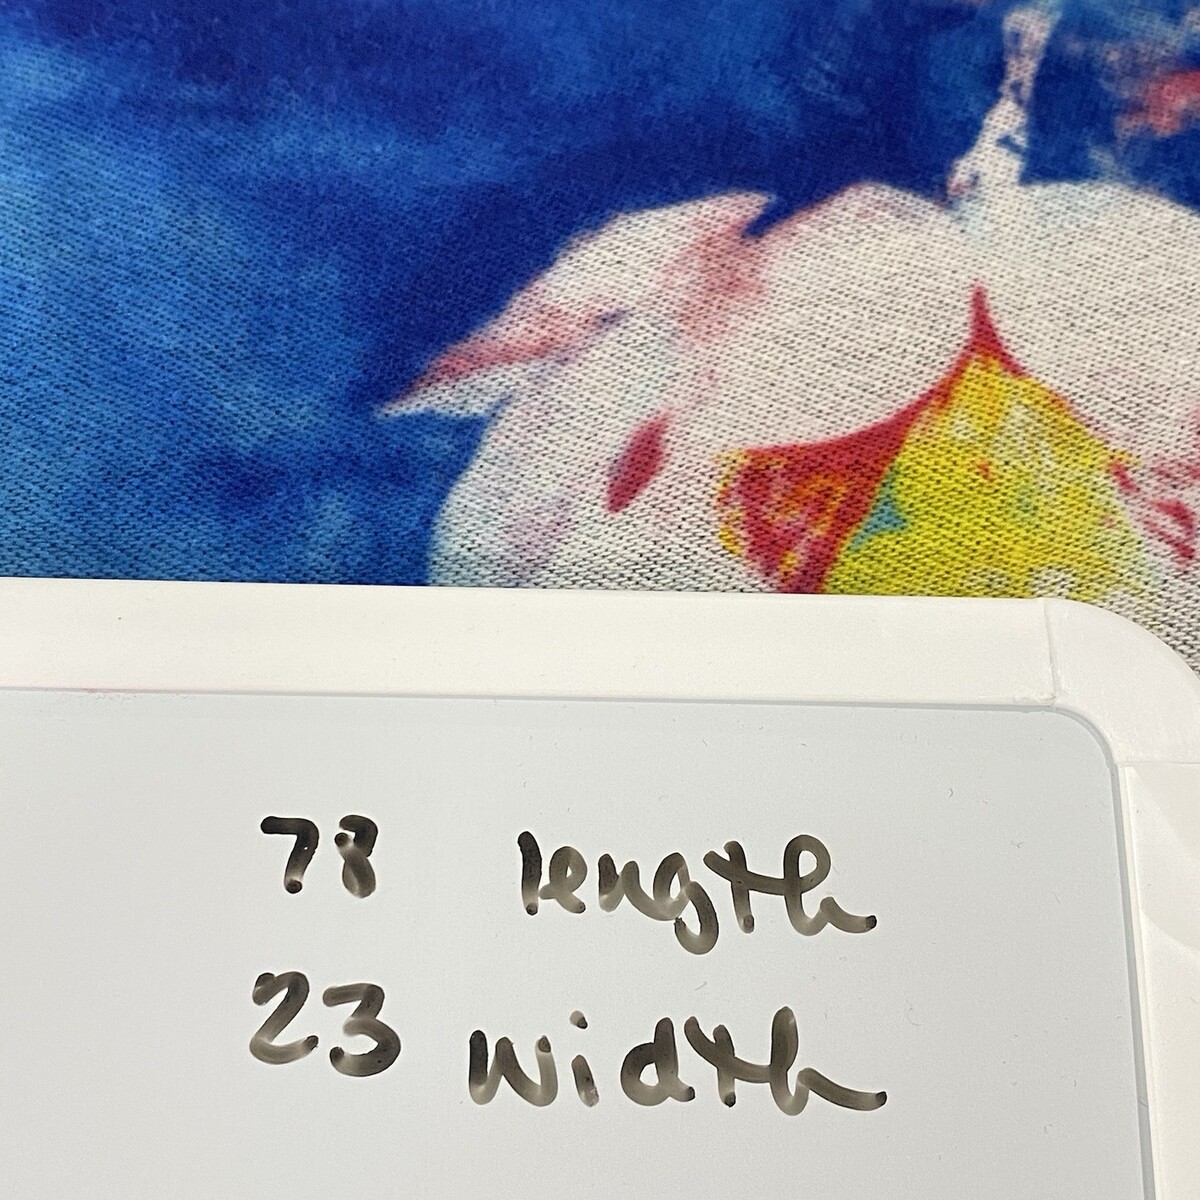 78 length
23 width